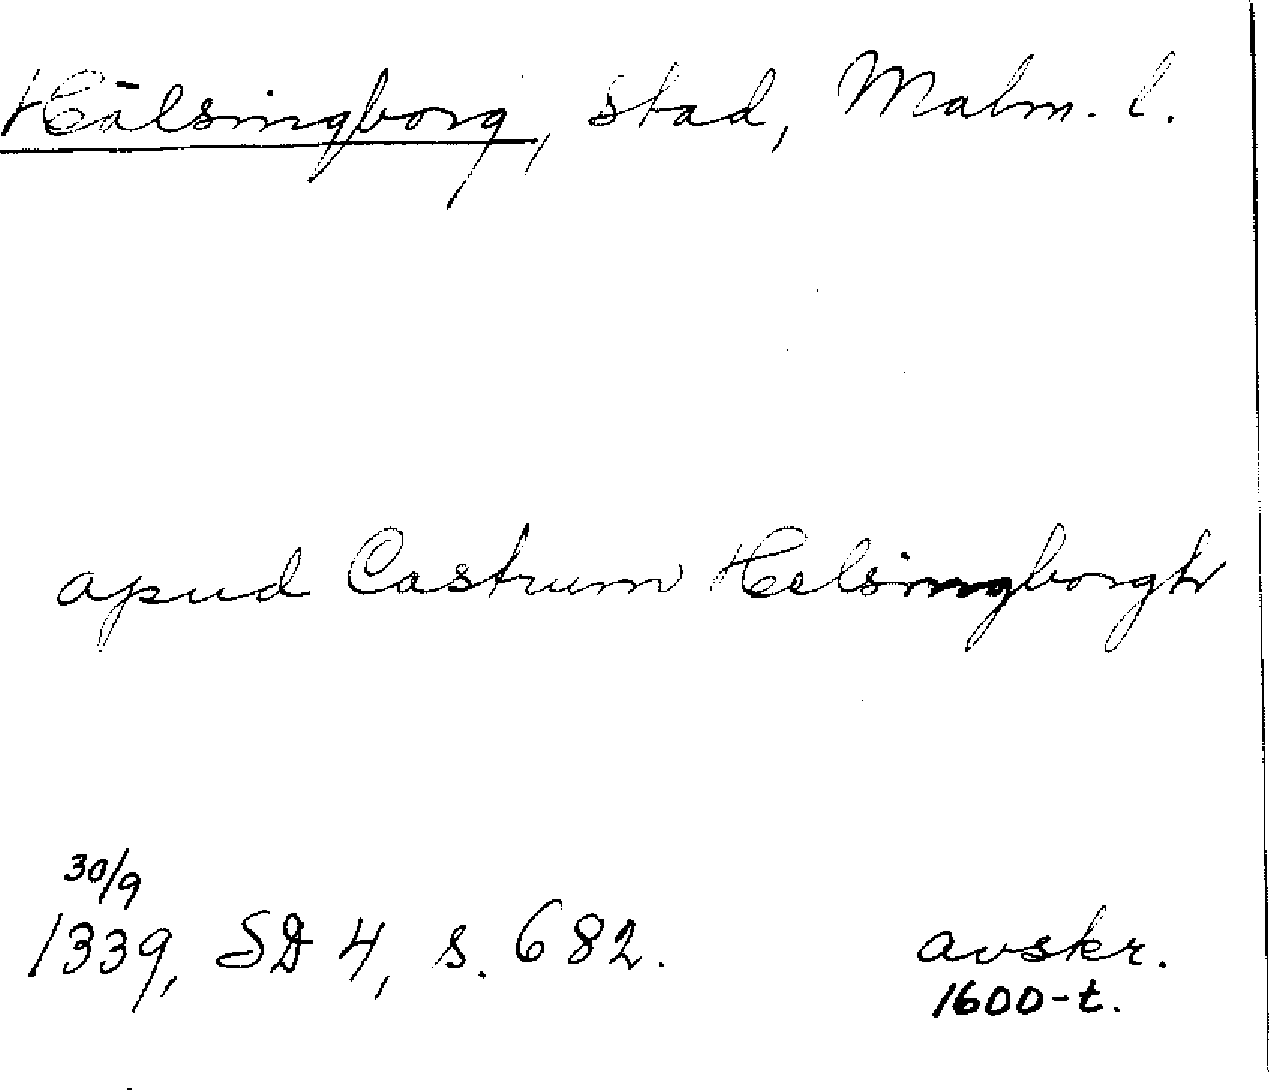 Hälsingborg, stad, Malm. l.
apud Castrum Helsingborgh
30/9
1339, SD 4, s. 682. avskr.
1600-t.